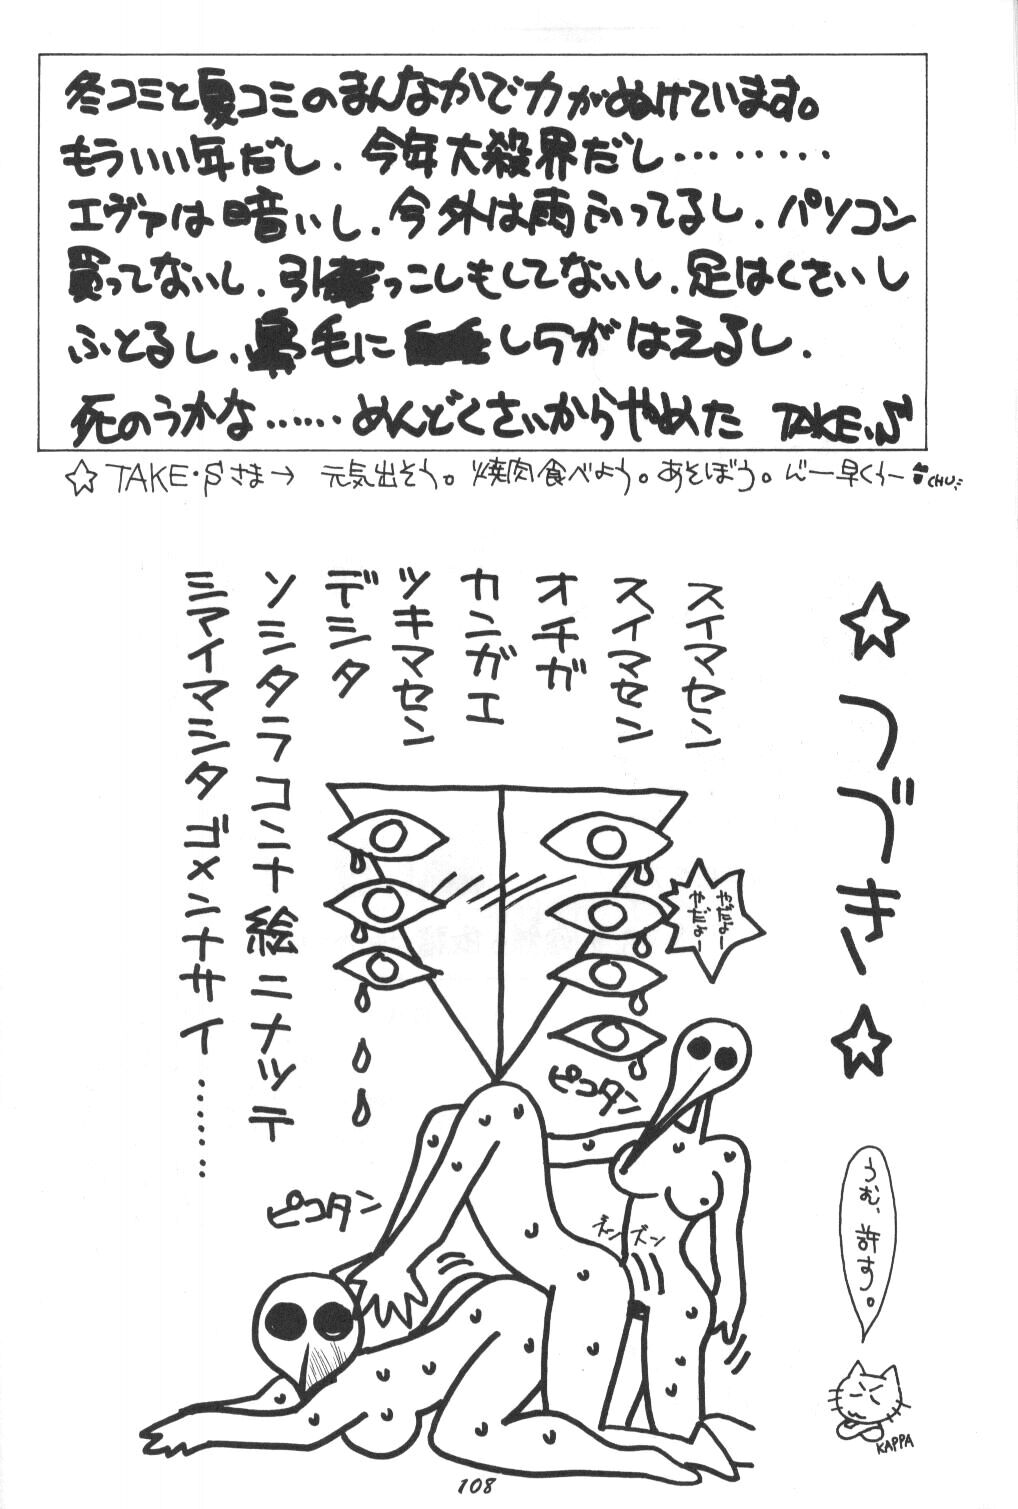 冬コミと夏コミのまんなかで力がぬけています。
もういい年だし、今年大殺界だし………
エヴァは暗いし、今外は雨ふってるし、パソコン
買ってないし、引っこしもしてないし、足はくさいし
ふとるし、鼻毛にしらがはえるし、
死のうかな……めんどくさいからやめた TAKE・S
☆TAKE・Sさま→ 元気出そう。焼肉食べよう。あそぼう。んー早くぅー CHU
☆つづき☆
スイマセン
スイマセン
オチガ
カンガエ
ツキマセン
デシタ
ソシタラコンナ絵ニナッテ
シマイマシタ ゴメンナサイ……
やだよー
やだよー
ピコタン
ピコタン
ズン ズン
うむ、許す。
KAPPA
108